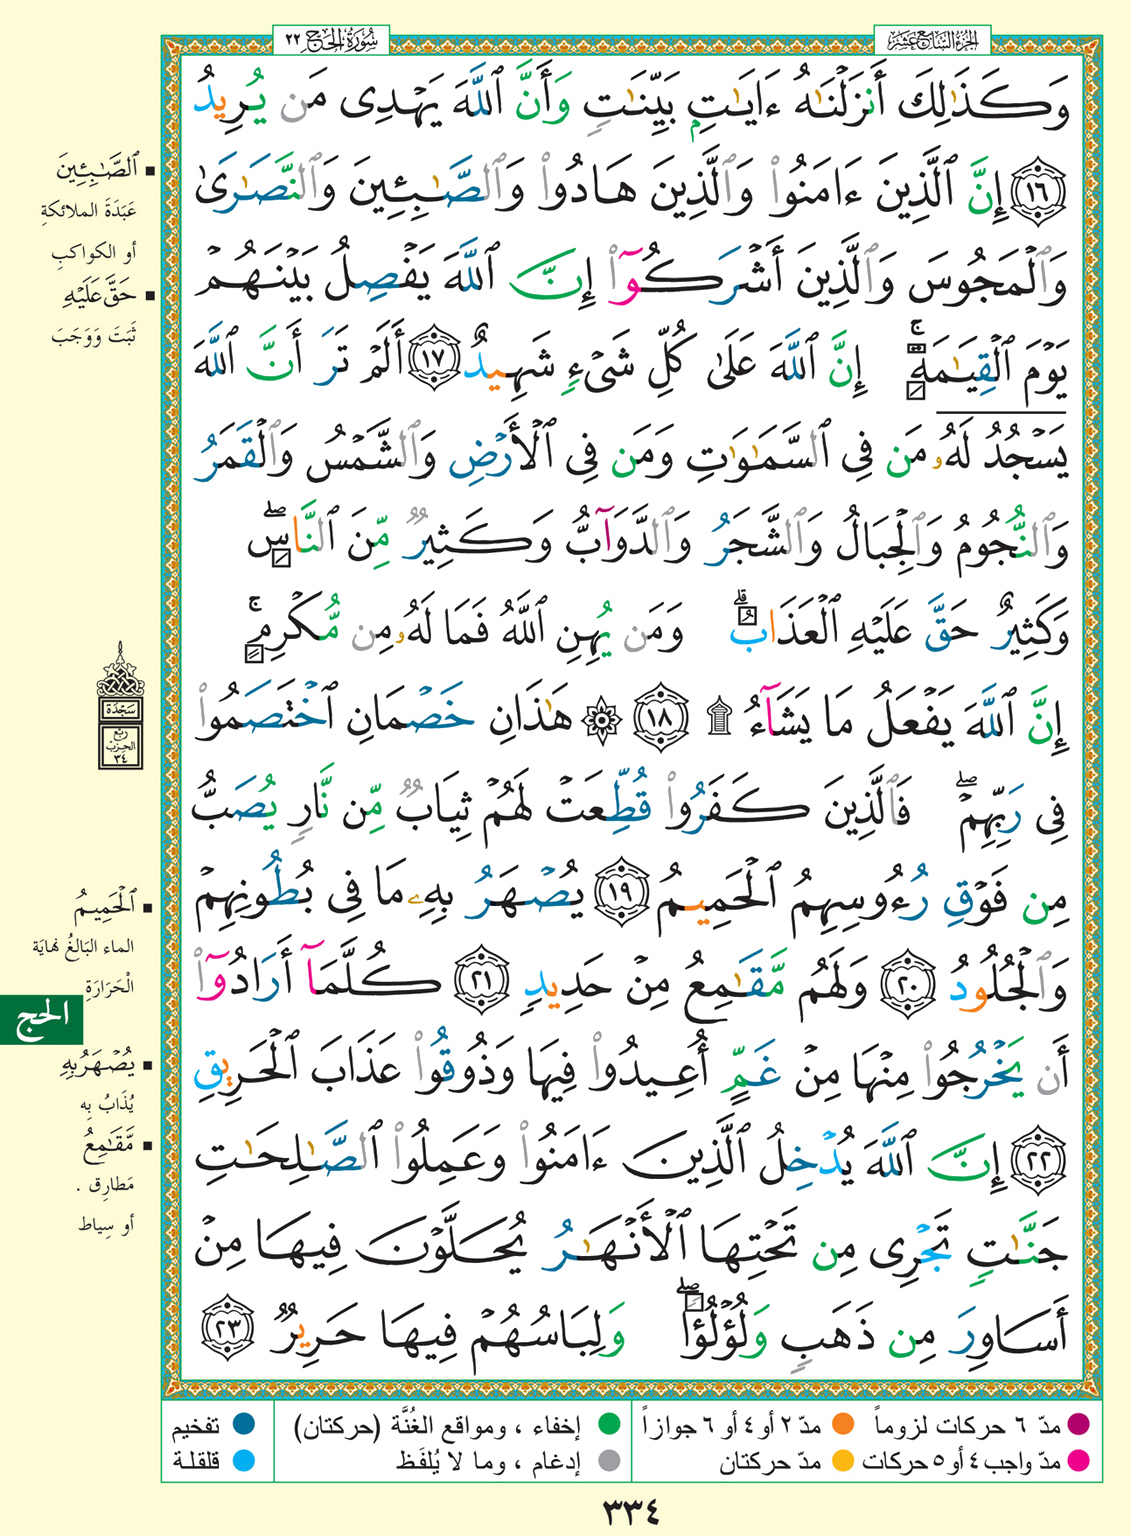 الجزء السابع عشر
سورة الحج ٢٢
وَكَذَٰلِكَ أَنزَلْنَٰهُ ءَايَٰتٍۭ بَيِّنَٰتٍ وَأَنَّ ٱللَّهَ يَهْدِى مَن يُرِيدُ
١٦ إِنَّ ٱلَّذِينَ ءَامَنُوا۟ وَٱلَّذِينَ هَادُوا۟ وَٱلصَّٰبِـِٔينَ وَٱلنَّصَٰرَىٰ
وَٱلْمَجُوسَ وَٱلَّذِينَ أَشْرَكُوٓا۟ إِنَّ ٱللَّهَ يَفْصِلُ بَيْنَهُمْ
يَوْمَ ٱلْقِيَٰمَةِ ۚ إِنَّ ٱللَّهَ عَلَىٰ كُلِّ شَىْءٍ شَهِيدٌ ١٧ أَلَمْ تَرَ أَنَّ ٱللَّهَ
يَسْجُدُ لَهُۥ مَن فِى ٱلسَّمَٰوَٰتِ وَمَن فِى ٱلْأَرْضِ وَٱلشَّمْسُ وَٱلْقَمَرُ
وَٱلنُّجُومُ وَٱلْجِبَالُ وَٱلشَّجَرُ وَٱلدَّوَآبُّ وَكَثِيرٌ مِّنَ ٱلنَّاسِ ۖ
وَكَثِيرٌ حَقَّ عَلَيْهِ ٱلْعَذَابُ ۗ وَمَن يُهِنِ ٱللَّهُ فَمَا لَهُۥ مِن مُّكْرِمٍ ۚ
إِنَّ ٱللَّهَ يَفْعَلُ مَا يَشَآءُ ۩ ١٨ ۞ هَٰذَانِ خَصْمَانِ ٱخْتَصَمُوا۟
فِى رَبِّهِمْ ۖ فَٱلَّذِينَ كَفَرُوا۟ قُطِّعَتْ لَهُمْ ثِيَابٌ مِّن نَّارٍ يُصَبُّ
مِن فَوْقِ رُءُوسِهِمُ ٱلْحَمِيمُ ١٩ يُصْهَرُ بِهِۦ مَا فِى بُطُونِهِمْ
وَٱلْجُلُودُ ٢٠ وَلَهُم مَّقَٰمِعُ مِنْ حَدِيدٍ ٢١ كُلَّمَآ أَرَادُوٓا۟
أَن يَخْرُجُوا۟ مِنْهَا مِنْ غَمٍّ أُعِيدُوا۟ فِيهَا وَذُوقُوا۟ عَذَابَ ٱلْحَرِيقِ
٢٢ إِنَّ ٱللَّهَ يُدْخِلُ ٱلَّذِينَ ءَامَنُوا۟ وَعَمِلُوا۟ ٱلصَّٰلِحَٰتِ
جَنَّٰتٍ تَجْرِى مِن تَحْتِهَا ٱلْأَنْهَٰرُ يُحَلَّوْنَ فِيهَا مِنْ
أَسَاوِرَ مِن ذَهَبٍ وَلُؤْلُؤًا ۖ وَلِبَاسُهُمْ فِيهَا حَرِيرٌ ٢٣
▪ ٱلصَّٰبِـِٔينَ
عَبَدَةَ الملائكةِ
أو الكواكبِ
▪ حَقَّ عَلَيْهِ
ثَبَتَ وَوَجَبَ
سجدة
ربع
الحزب
٣٤
▪ ٱلْحَمِيمُ
الماء البَالغُ نهايَة
الْحَرَارَةِ
الحج
▪ يُصْهَرُ بِهِ
يُذَابُ بِه
▪ مَّقَٰمِعُ
مَطارِق .
أو سِياط
مدّ ٦ حركات لزوماً
مدّ ٢ أو ٤ أو ٦ جوازاً
إخفاء ، ومواقع الغُنَّة (حركتان)
تفخيم
مدّ واجب ٤ أو ٥ حركات
مدّ حركتان
إدغام ، وما لا يُلفَظ
قلقلة
٣٣٤